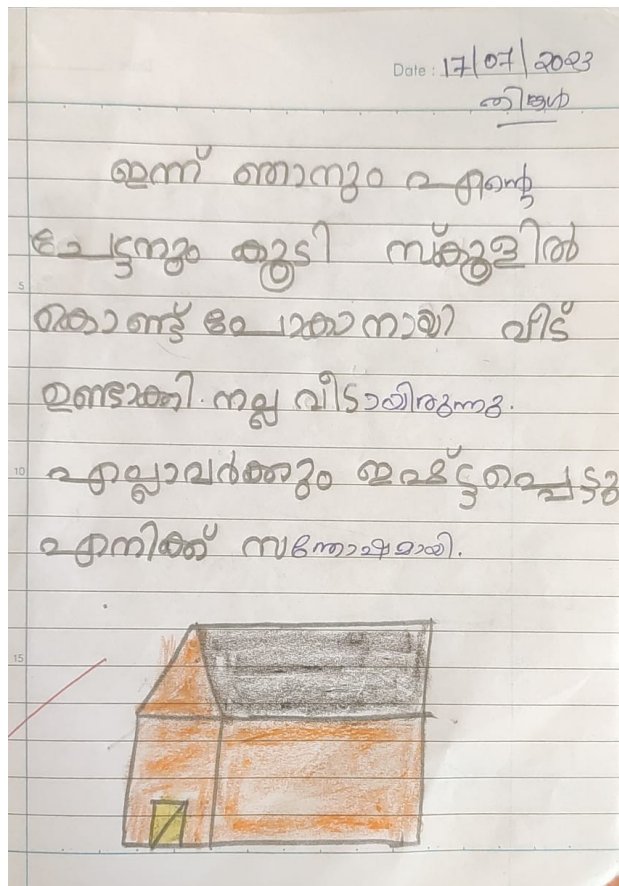 Date : 17/07/2023
തിങ്കൾ
ഇന്ന് ഞാനും എന്റെ
ചേട്ടനും കൂടി സ്കൂളിൽ
കൊണ്ട് പോകാനായി വീട്
ഉണ്ടാക്കി. നല്ല വീടായിരുന്നു.
എല്ലാവർക്കും ഇഷ്ട്ടപ്പെട്ടു
എനിക്ക് സന്തോഷമായി.
5
10
15